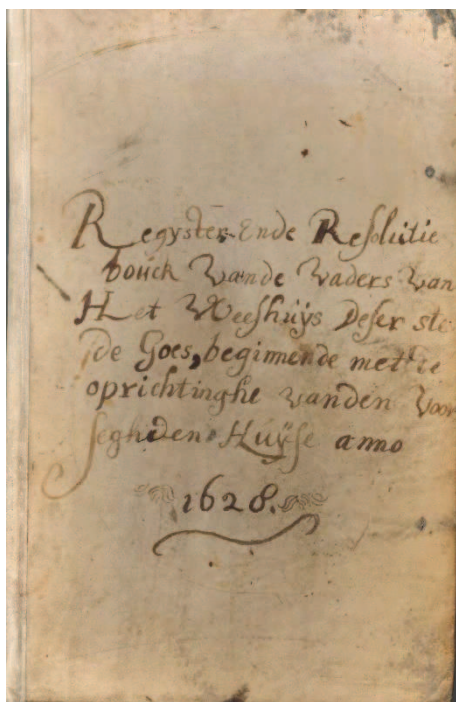 Regyster Ende Resolutie
bouck Vande Vaders Van
Het Weeshuÿs Deser ste
de Goes, beginnende mette
oprichtinghe vanden Voor
seghden Huÿse anno
1628.